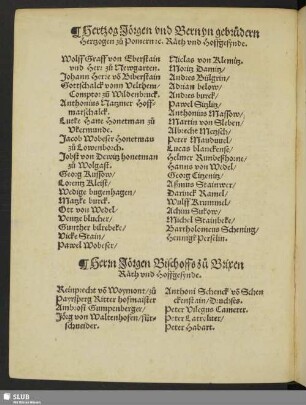 ¶Hertzog Jörgen vnd Bernyn gebrüdern
Hertzogen zů Pomern ꝛc. Räth vnd Hoffgesynde.
Wolff Graff von Eberstain
vnd Herr zů Newgarten.
Johann Herre vö Biberstain
Gottschalck vonn Velthem/
Comptor zů Wildenbruck.
Anthonius Natzmer Hoff=
marschalck.
Lutke Hane Honetman zů
Vkermunde.
Jacob Wobeser Honetman
zů Lowenborch.
Jobst von Dewitz honetman
zů Wolgast.
Georg Russow/
Lorentz Kleist/
Wedige bugenhagen/
Matzke burck.
Ott von Wedel/
Ventze blücher/
Gunther bilrebeke/
Vicke Stain/
Pawel Wobeser/
Niclas von Klemitz/
Moritz Damitz/
Andres Bülgrin/
Adrian below/
Andres burck/
Pawel Sitzlitz/
Anthonius Massow/
Martin von Sleben/
Albrecht Metzsch/
Peter Maudunel/
Lucas blanckense/
Helmer Rumbeshorne/
Hanns von Wedel/
Georg Citzenitz/
Aßmus Stainwer/
Darinck Ramel/
Wulff Krummel/
Achim Sukow/
Michel Stainbeke/
Bartholomeus Schening/
Hennigk Perselin.
¶Herrn Jörgen Bischoffs zů Brixen
Räth vnd Hoffgesynde.
Reinprecht vö Woymont/zů
Paynsperg Ritter hofmaister
Ambrosi Gumpenberger/
Jörg von Waltenhofen/für=
schneider.
Anthoni Schenck vö Schen
ckenstain/Druchses.
Peter Vilegus Camerer.
Peter Latroliter/
Peter Habart.
SLUB